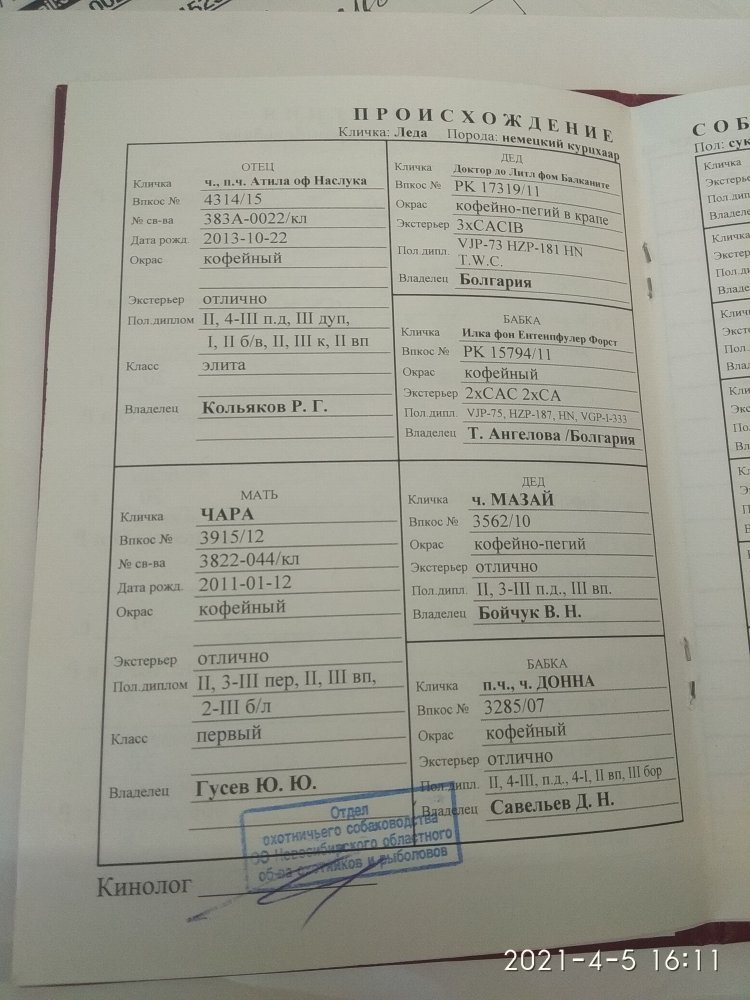 ПРОИСХОЖДЕНИЕ
Кличка: Леда Порода: немецкий курцхаар
ОТЕЦ
Кличка ч., п.ч. Атила оф Наслука
Впкос № 4314/15
№ св-ва 383А-0022/кл
Дата рожд. 2013-10-22
Окрас кофейный
Экстерьер отлично
Пол.диплом II, 4-III п.д, III дуп,
I, II б/в, II, III к, II вп
Класс элита
Владелец Кольяков Р. Г.
ДЕД
Кличка Доктор до Литл фом Балканите
Впкос № РК 17319/11
Окрас кофейно-пегий в крапе
Экстерьер 3xCACIB
Пол.дипл. VJP-73 HZP-181 HN
T.W.C.
Владелец Болгария
БАБКА
Кличка Илка фон Ентенпфулер Форст
Впкос № РК 15794/11
Окрас кофейный
Экстерьер 2xCAC 2xCA
Пол.дипл. VJP-75, HZP-187, HN, VGP-I-333
Владелец Т. Ангелова /Болгария
МАТЬ
Кличка ЧАРА
Впкос № 3915/12
№ св-ва 3822-044/кл
Дата рожд. 2011-01-12
Окрас кофейный
Экстерьер отлично
Пол.диплом II, 3-III пер, II, III вп,
2-III б/л
Класс первый
Владелец Гусев Ю. Ю.
ДЕД
Кличка ч. МАЗАЙ
Впкос № 3562/10
Окрас кофейно-пегий
Экстерьер отлично
Пол.дипл. II, 3-III п.д., III вп.
Владелец Бойчук В. Н.
БАБКА
Кличка п.ч., ч. ДОННА
Впкос № 3285/07
Окрас кофейный
Экстерьер отлично
Пол.дипл. II, 4-III, п.д., 4-I, II вп, III бор
Владелец Савельев Д. Н.
Отдел
охотничьего собаководства
ОО Новосибирского областного
об-ва охотников и рыболовов
Кинолог
СОБ
Пол: сук
Кличка
Экстерье
Пол.дип
Владеле
Кличка
2021-4-5 16:11